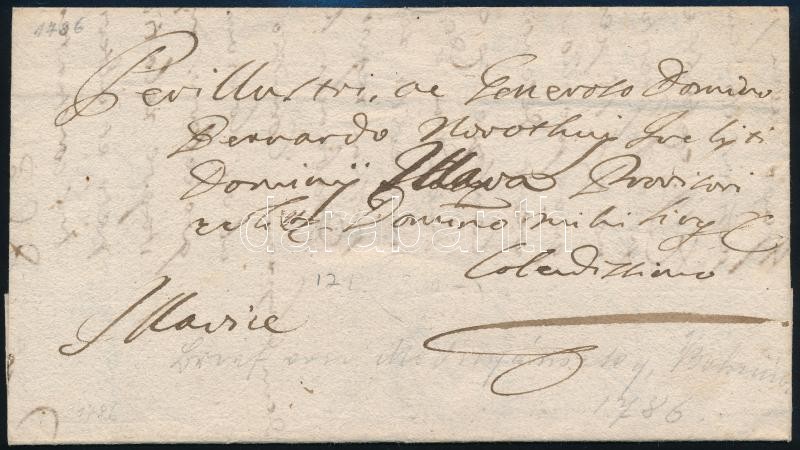 1786
Perillustri ac Generoso Domino
Bernardo Novothnij Inclyti
Dominij Illava Provisori
Domino mihi
Colendissimo
Illavice
darabanth
12
Brief
1786
1786